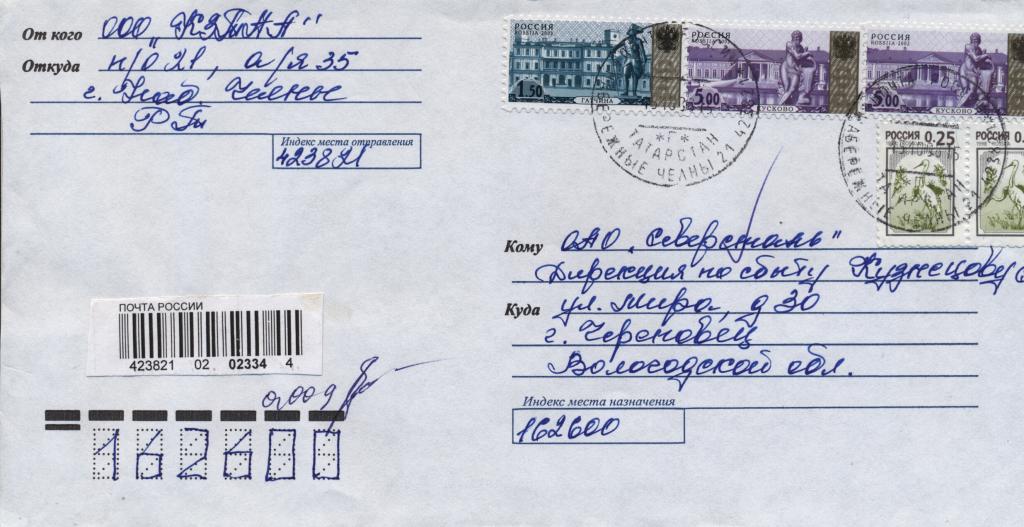 От кого ООО „КЭТАА"
Откуда п/о 21, а/я 35
г. Наб Челны
РТ
Индекс места отправления
423821
РОССИЯ
ROSSIJA 2003
1.50
ГАТЧИНА
РОССИЯ
ROSSIJA 2002
5.00
КУСКОВО
РОССИЯ
ROSSIJA 2002
5.00
КУСКОВО
*Г*
ТАТАРСТАН
НАБЕРЕЖНЫЕ ЧЕЛНЫ 21
РОССИЯ 0.25
РОССИЯ
Кому ОАО „Северсталь"
Дирекция по сбыту Кузнецову
Куда ул. Мира, д 30
г. Череповец
Вологодской обл.
Индекс места назначения
162600
ПОЧТА РОССИИ
423821 02 02334 4
162600